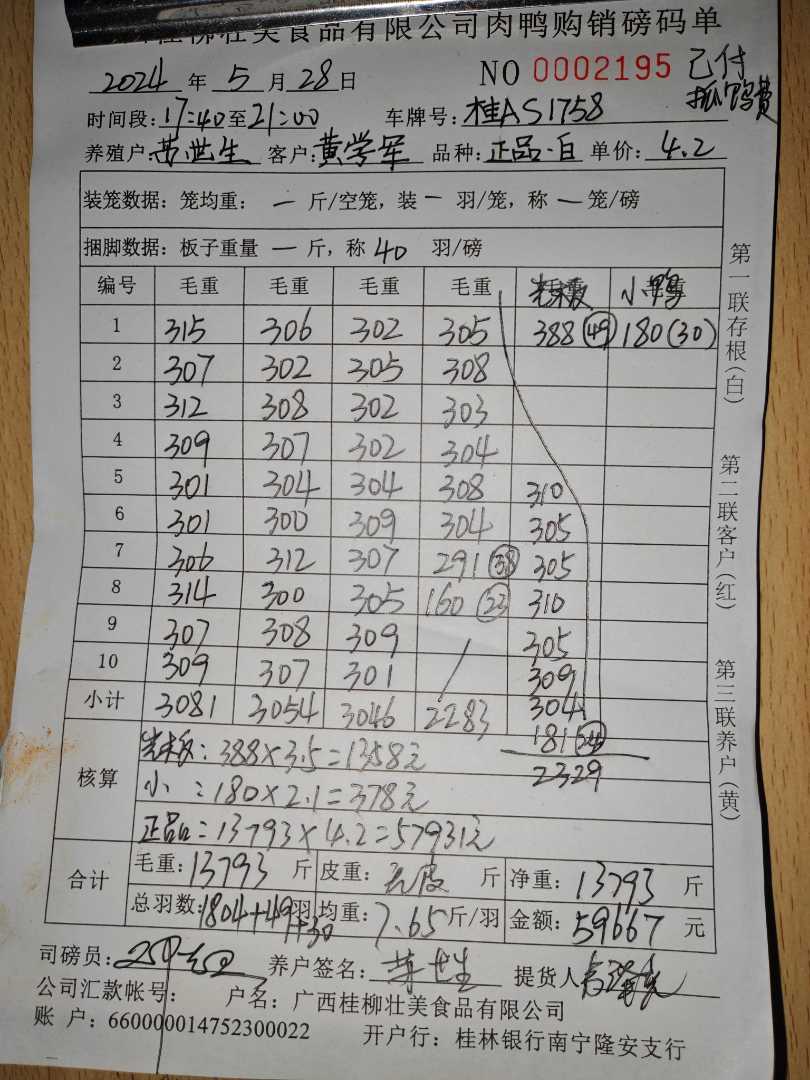 桂柳壮美食品有限公司肉鸭购销磅码单
2024 年 5 月 28 日 NO 0002195 已付
抓鸭费
时间段: 17:40 至 21:00 车牌号: 桂AS1758
养殖户 黄世生 客户: 黄学军 品种: 正品·白 单价: 4.2
装笼数据: 笼均重: 一 斤/空笼, 装 一 羽/笼, 称 一 笼/磅
捆脚数据: 板子重量 一 斤, 称 40 羽/磅
编号 毛重 毛重 毛重 毛重 小鸭
1 315 306 302 305 388 (49) 180 (30)
2 307 302 305 308
3 312 308 302 303
4 309 307 302 304
5 301 304 304 308 310
6 301 300 309 304 305
7 306 312 307 291 (38) 305
8 314 300 305 160 (23) 310
9 307 308 309 / 305
10 309 307 301 309
小计 3081 3054 3046 2283 304
181 (24)
2329
核算
388×3.5=1358元
小 :180×2.1=378元
正品:13793×4.2=57931元
合计
毛重: 13793 斤 皮重: 无皮 斤 净重: 13793 斤
总羽数: 1804+49羽+30 均重: 7.65 斤/羽 金额: 59667 元
司磅员: 养户签名: 提货人
公司汇款帐号: 户名: 广西桂柳壮美食品有限公司
账 户: 660000014752300022 开户行: 桂林银行南宁隆安支行
第一联存根(白)
第二联客户(红)
第三联养户(黄)